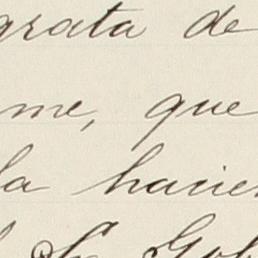 grata de
me, que
la hacien